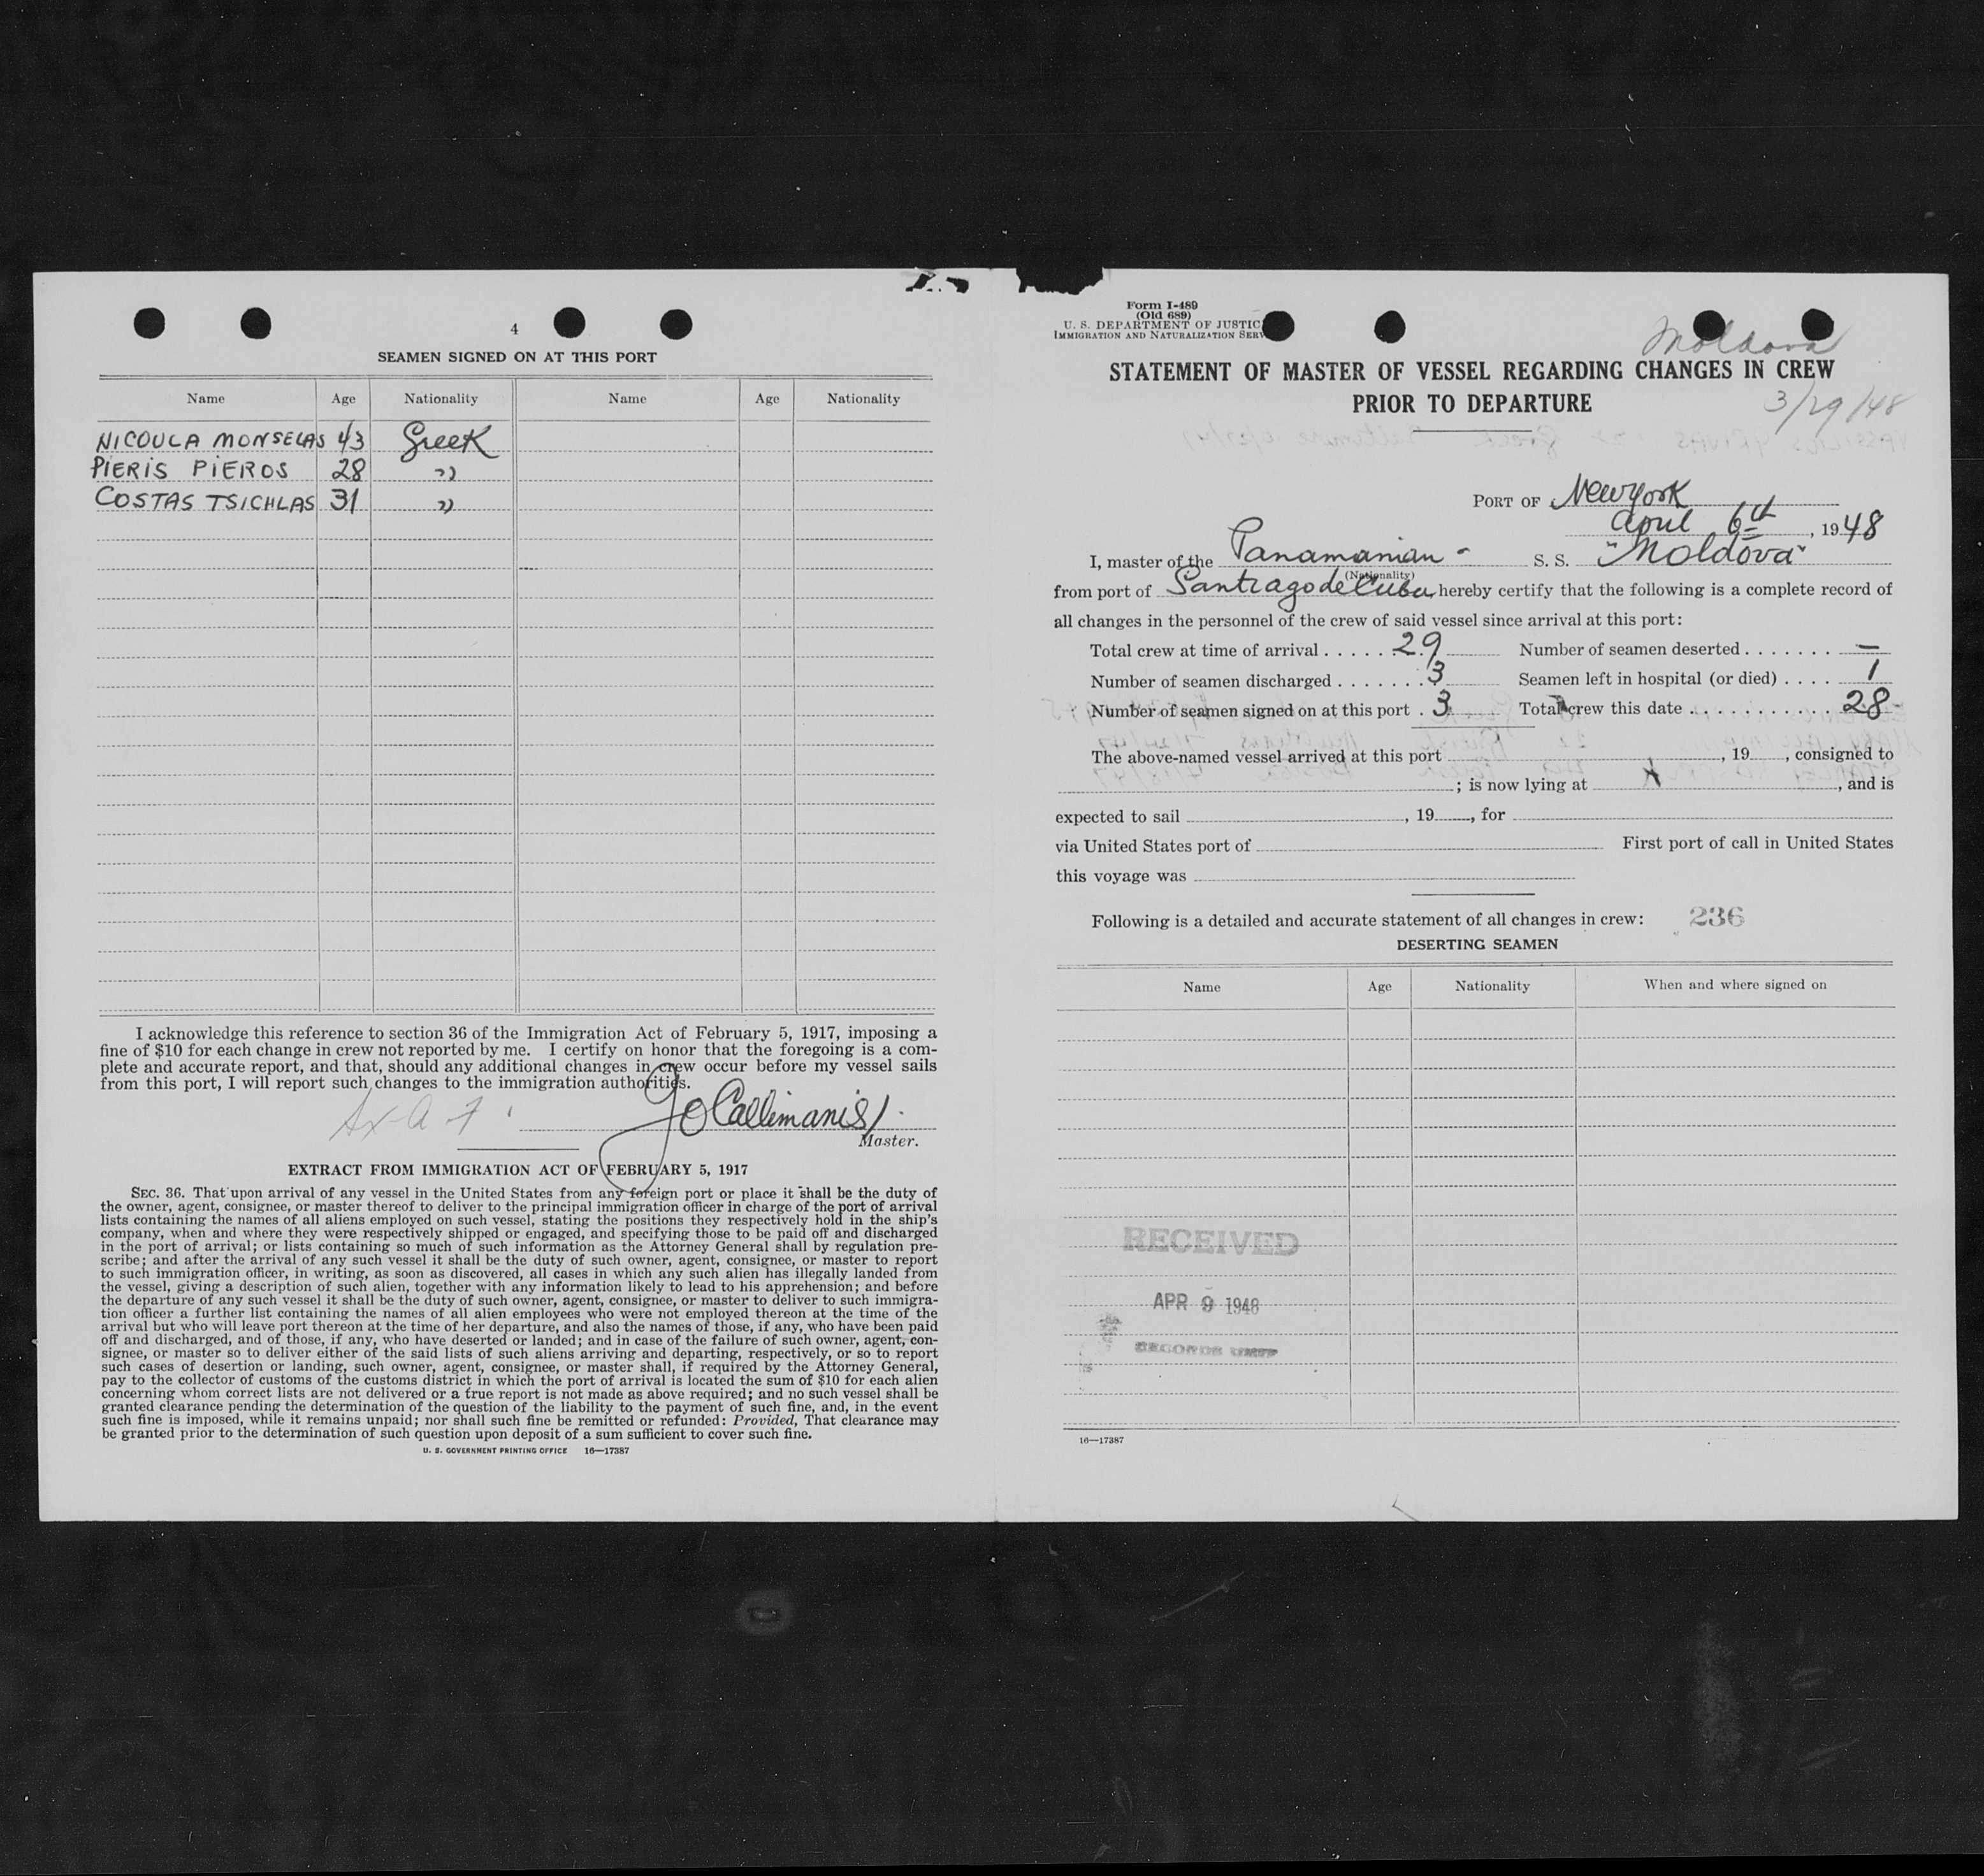 4
SEAMEN SIGNED ON AT THIS PORT
Name Age Nationality Name Age Nationality
NICOULA MONSELAS 43 Greek
PIERIS PIEROS 28 "
COSTAS TSICHLAS 31 "
I acknowledge this reference to section 36 of the Immigration Act of February 5, 1917, imposing a
fine of $10 for each change in crew not reported by me. I certify on honor that the foregoing is a com-
plete and accurate report, and that, should any additional changes in crew occur before my vessel sails
from this port, I will report such changes to the immigration authorities.
Callimanis
Master.
EXTRACT FROM IMMIGRATION ACT OF FEBRUARY 5, 1917
SEC. 36. That upon arrival of any vessel in the United States from any foreign port or place it shall be the duty of
the owner, agent, consignee, or master thereof to deliver to the principal immigration officer in charge of the port of arrival
lists containing the names of all aliens employed on such vessel, stating the positions they respectively hold in the ship's
company, when and where they were respectively shipped or engaged, and specifying those to be paid off and discharged
in the port of arrival; or lists containing so much of such information as the Attorney General shall by regulation pre-
scribe; and after the arrival of any such vessel it shall be the duty of such owner, agent, consignee, or master to report
to such immigration officer, in writing, as soon as discovered, all cases in which any such alien has illegally landed from
the vessel, giving a description of such alien, together with any information likely to lead to his apprehension; and before
the departure of any such vessel it shall be the duty of such owner, agent, consignee, or master to deliver to such immigra-
tion officer a further list containing the names of all alien employees who were not employed thereon at the time of the
arrival but who will leave port thereon at the time of her departure, and also the names of those, if any, who have been paid
off and discharged, and of those, if any, who have deserted or landed; and in case of the failure of such owner, agent, con-
signee, or master so to deliver either of the said lists of such aliens arriving and departing, respectively, or so to report
such cases of desertion or landing, such owner, agent, consignee, or master shall, if required by the Attorney General,
pay to the collector of customs of the customs district in which the port of arrival is located the sum of $10 for each alien
concerning whom correct lists are not delivered or a true report is not made as above required; and no such vessel shall be
granted clearance pending the determination of the question of the liability to the payment of such fine, and, in the event
such fine is imposed, while it remains unpaid; nor shall such fine be remitted or refunded: Provided, That clearance may
be granted prior to the determination of such question upon deposit of a sum sufficient to cover such fine.
U. S. GOVERNMENT PRINTING OFFICE 16—17387
Form I-489
(Old 689)
U. S. DEPARTMENT OF JUSTIC
IMMIGRATION AND NATURALIZATION SERV
Moldova
STATEMENT OF MASTER OF VESSEL REGARDING CHANGES IN CREW
PRIOR TO DEPARTURE
3/29/48
PORT OF New York
April 6th, 1948
I, master of the Panamanian - S. S. "Moldova"
(Nationality)
from port of Santiago de Cuba, hereby certify that the following is a complete record of
all changes in the personnel of the crew of said vessel since arrival at this port:
Total crew at time of arrival ..... 29 Number of seamen deserted ....... —
Number of seamen discharged ....... 3 Seamen left in hospital (or died) .... 1
Number of seamen signed on at this port . 3 Total crew this date ........... 28
The above-named vessel arrived at this port , 19 , consigned to
; is now lying at x , and is
expected to sail , 19 , for
via United States port of First port of call in United States
this voyage was
Following is a detailed and accurate statement of all changes in crew: 236
DESERTING SEAMEN
Name Age Nationality When and where signed on
RECEIVED
APR 9 1948
RECORDS UNIT
16—17387